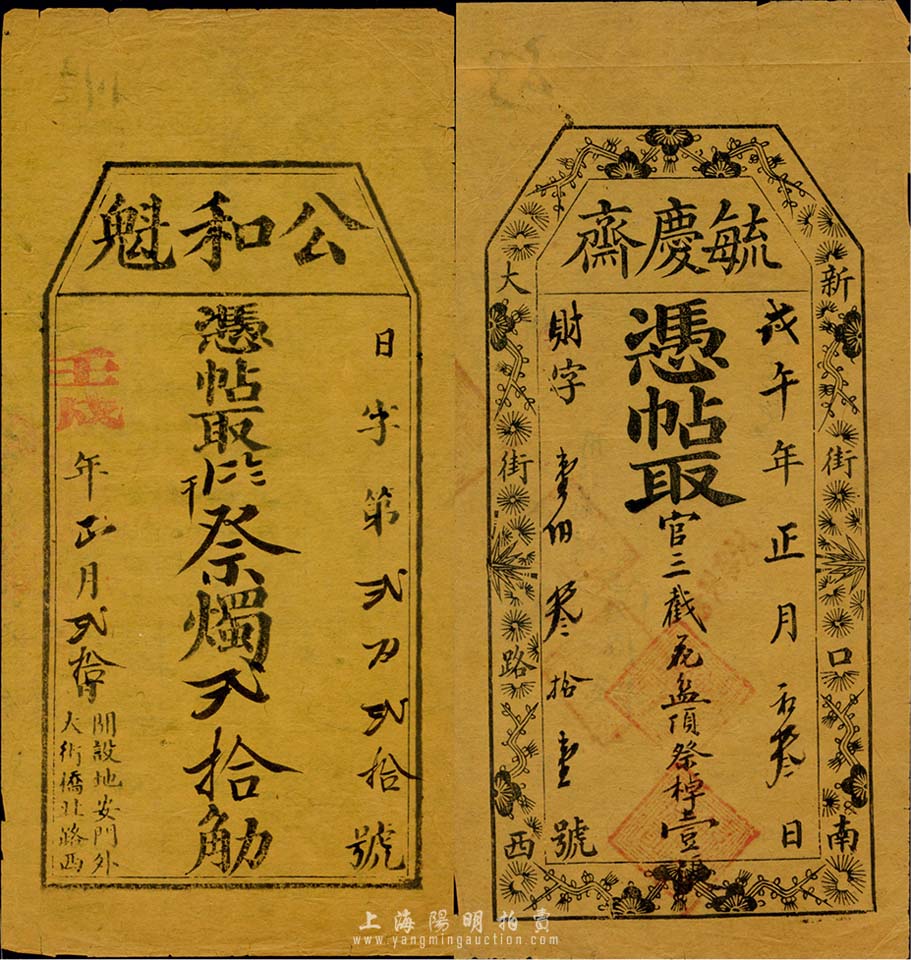 公和魁
日字第弍万弍拾號
憑帖取
祭燭弍拾觔
壬戌年正月弍拾日
開設地安門外
大街橋北路西
毓慶齋
新街口南
大街路西
戊午年正月初叁日
憑帖取官三截花盆頂祭棹壹張
財字壹佰叁拾壹號
上海陽明拍賣
www.yangmingauction.com